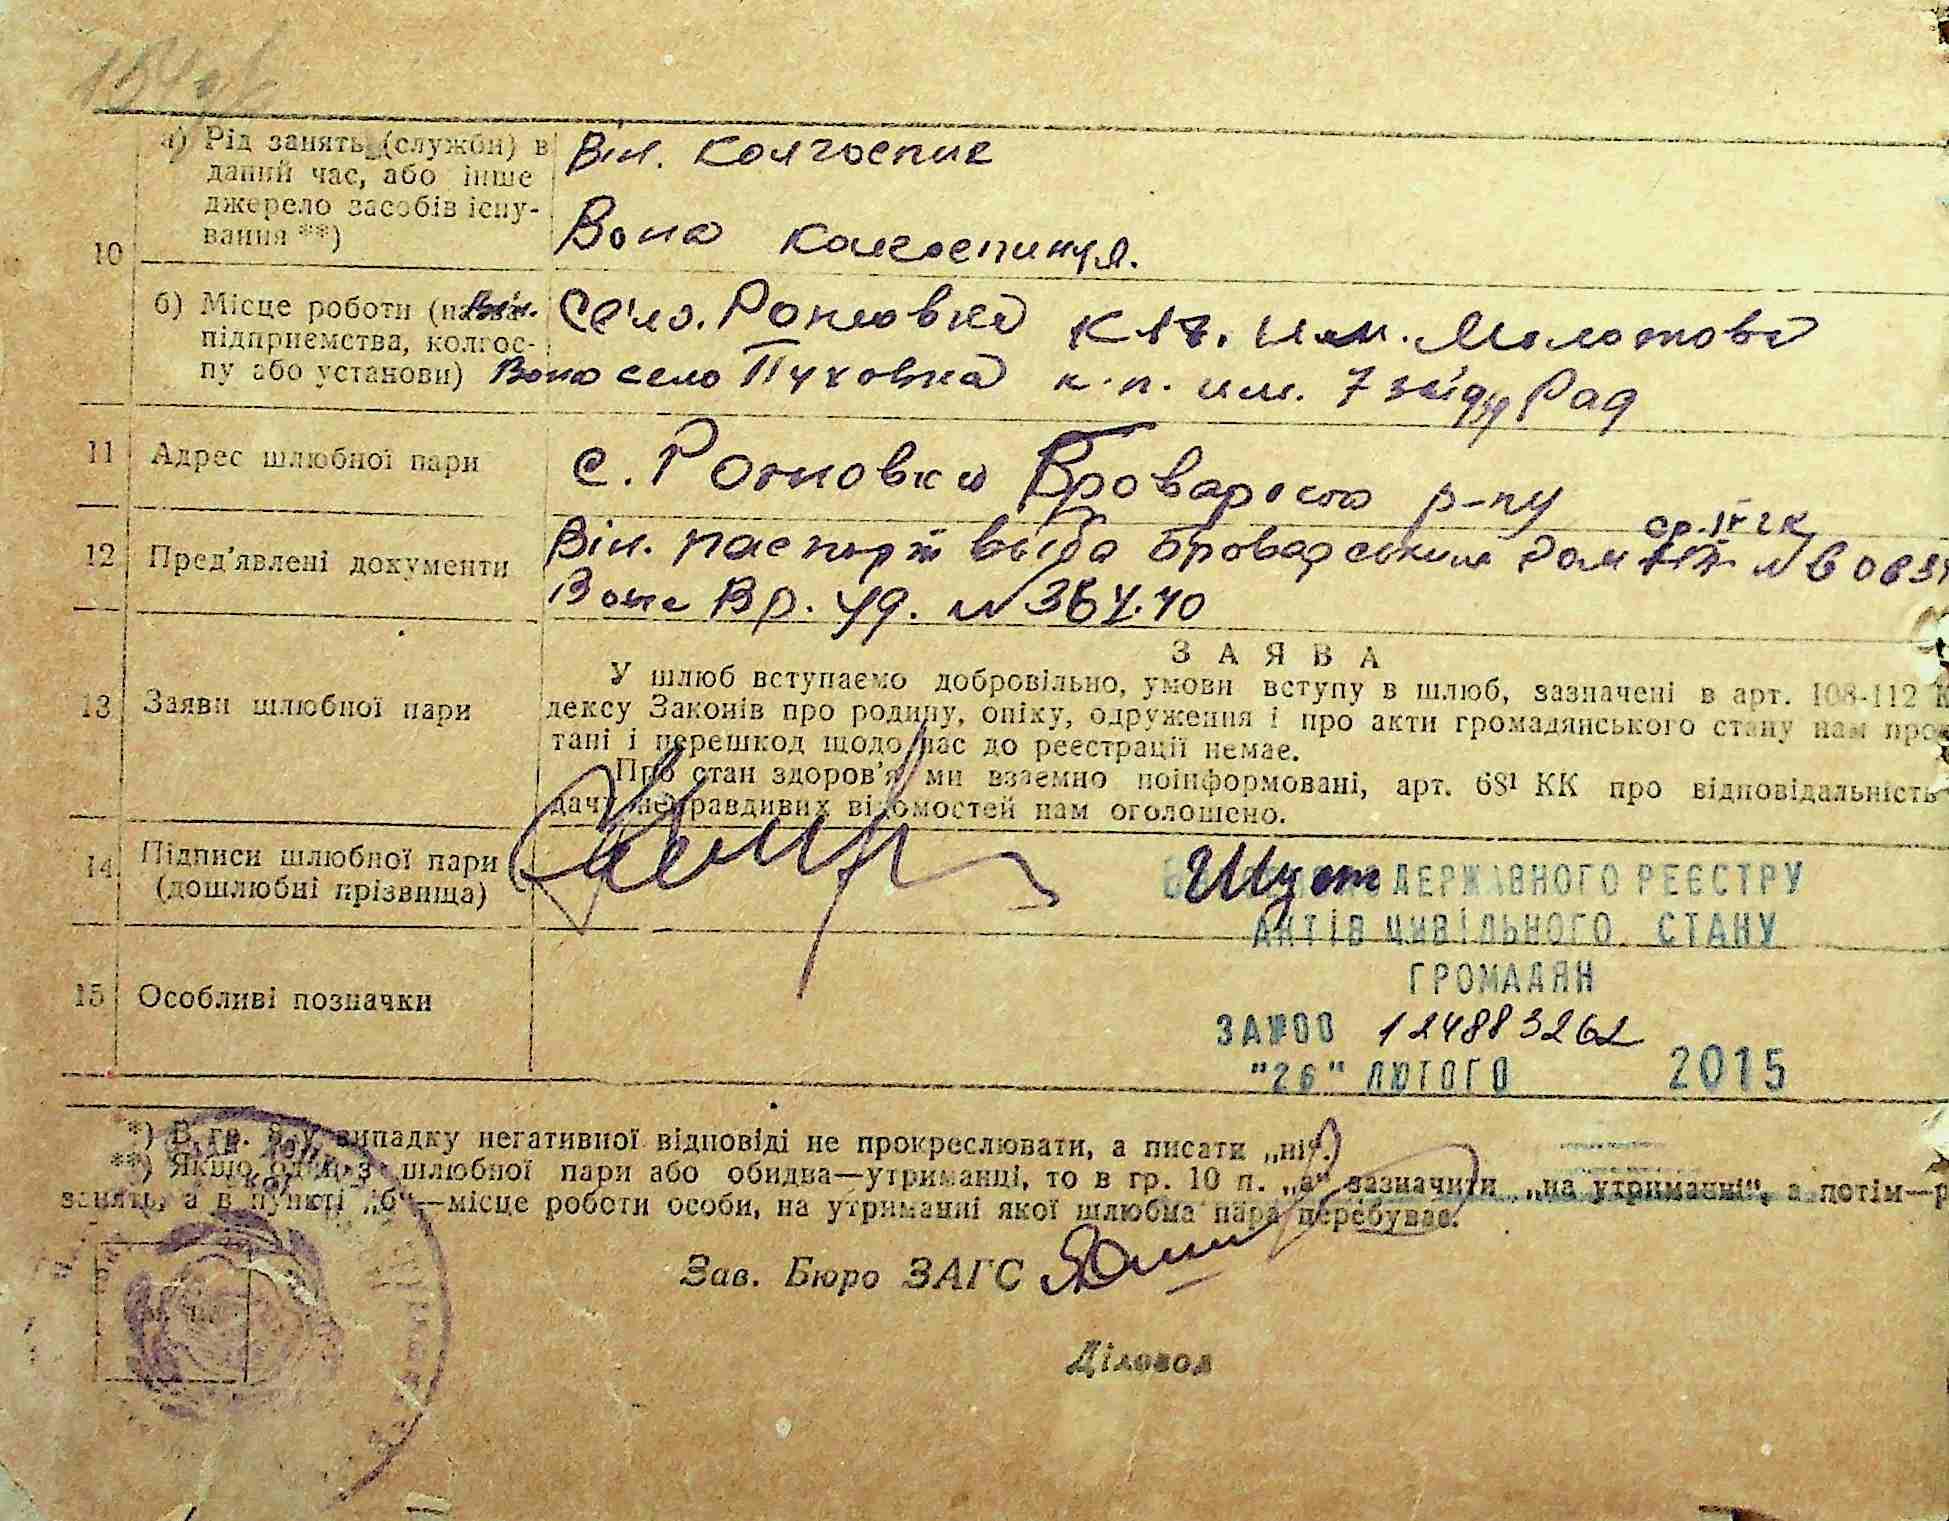 а) Рід занять (служби) в
даний час, або інше
джерело засобів існу-
вання **)
10
Він. Колгоспник
Вона колгоспниця.
б) Місце роботи (назва
підприємства, колгос-
пу або установи)
Він. Село. Рожовка к-п. им. Молотова
Вона село Пуховка к.п. им. 7 зъїзду Рад
11 Адрес шлюбної пари
с. Рожовка Броварського р-ну
12 Пред'явлені документи
Він. паспорт Броварським
Вона Вр. уд. № 364.40
13 Заяви шлюбної пари
ЗАЯВА
У шлюб вступаємо добровільно, умови вступу в шлюб, зазначені в арт. 108-112 К
дексу Законів про родину, опіку, одруження і про акти громадянського стану нам про
тані і перешкод щодо нас до реєстрації немає.
Про стан здоров'я ми взаємно поінформовані, арт. 68¹ КК про відповідальність
дачу неправдивих відомостей нам оголошено.
14 Підписи шлюбної пари
(дошлюбні прізвища)
Шуст
ДЕРЖАВНОГО РЕЄСТРУ
АКТІВ ЦИВІЛЬНОГО СТАНУ
ГРОМАДЯН
15 Особливі позначки
ЗА №00 124883262
"26" ЛЮТОГО 2015
*) В гр. 8 у випадку негативної відповіді не прокреслювати, а писати „ні".
**) Якщо один з шлюбної пари або обидва—утриманці, то в гр. 10 п. „а" зазначити „на утриманні", а потім—р
занять, а в пункті „б"—місце роботи особи, на утриманні якої шлюбна пара перебуває.
Зав. Бюро ЗАГС
Діловод